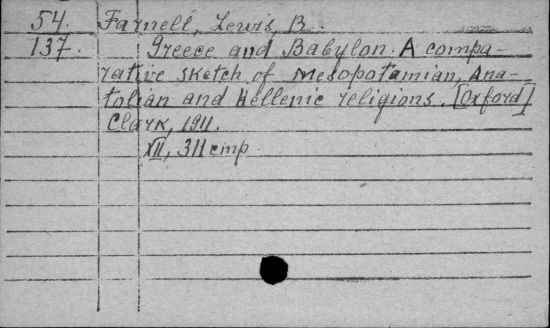 54. Farnell, Lewis, R.
137. Greece and Babylon. A compa-
rative sketch of Mesopotamian, Ana-
tolian and Hellenic religions. [Oxford]
Clark, 1911.
XII, 311 стр.